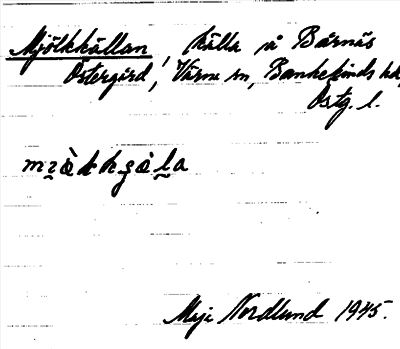 Mjölkkällan, källa å Bårnäs
Östergård, Värna sn, Bankekinds hd,
Östg. l.
Maja Nordlund 1945.